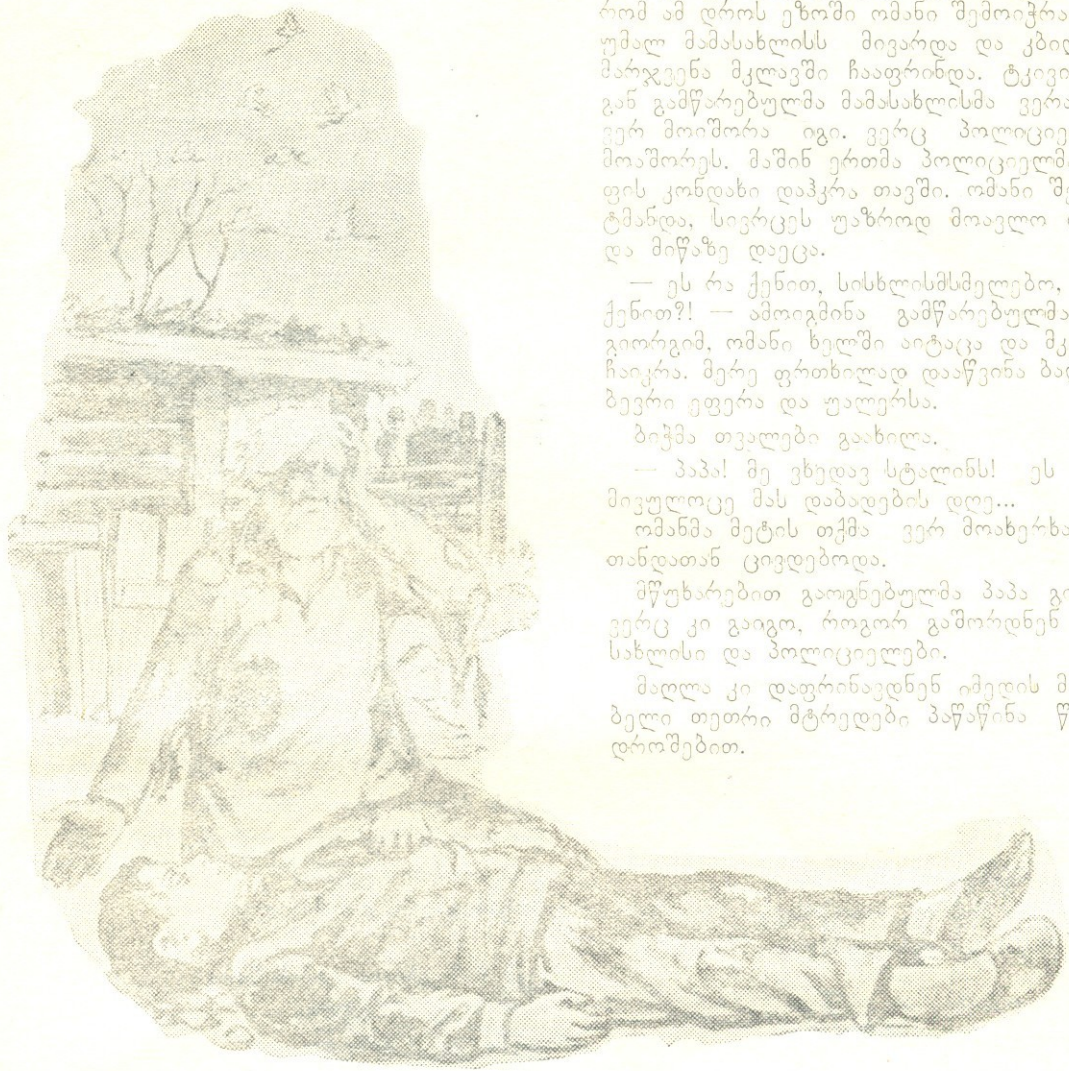 რომ ამ დროს ეზოში ომანი შემოიჭრა
უმალ მამასახლისს მივარდა და კბილ
მარჯვენა მკლავში ჩააფრინდა. ტკივი
გან გამწარებულმა მამასახლისმა ვერა
ვერ მოიშორა იგი. ვერც პოლიციე
მოაშორეს. მაშინ ერთმა პოლიციელმა
ფის კონდახი დაჰკრა თავში. ომანი შე
ტმანდა, სივრცეს უაზროდ მოავლო
და მიწაზე დაეცა.
— ეს რა ქენით, სისხლისმსმელებო,
ქენით?! — ამოიგმინა გამწარებულმა
გიორგიმ, ომანი ხელში აიტაცა და მკ
ჩაიკრა. მერე ფრთხილად დააწვინა ბალ
ბევრი ეფერა და უალერსა.
ბიჭმა თვალები გაახილა.
— პაპა! მე ვხედავ სტალინს! ეს
მივულოცე მას დაბადების დღე...
ომანმა მეტის თქმა ვერ მოახერხა
თანდათან ცივდებოდა.
მწუხარებით გაოგნებულმა პაპა გი
ვერც კი გაიგო, როგორ გაშორდნენ
სახლისი და პოლიციელები.
მაღლა კი დაფრინავდნენ იმედის მ
ბელი თეთრი მტრედები პაწაწინა წ
დროშებით.